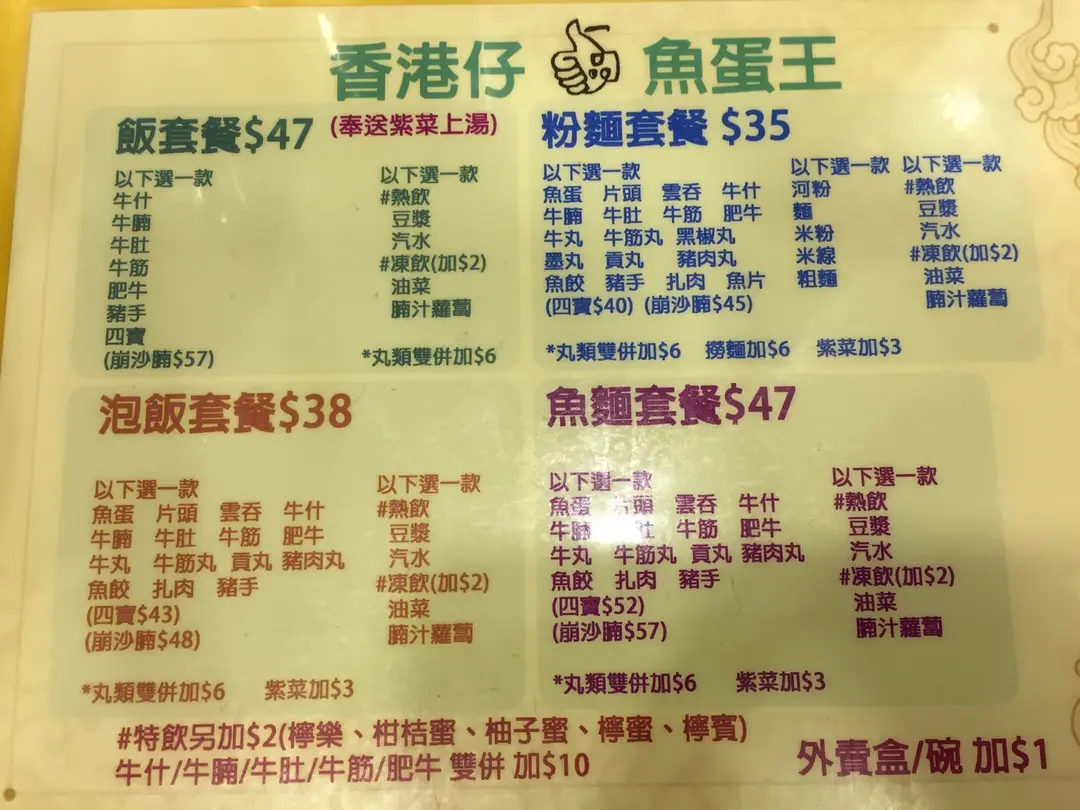 香港仔 魚蛋王
飯套餐$47 (奉送紫菜上湯)
以下選一款
牛什
牛腩
牛肚
牛筋
肥牛
豬手
四寶
(崩沙腩$57)
以下選一款
#熱飲
豆漿
汽水
#凍飲(加$2)
油菜
腩汁蘿蔔
*丸類雙併加$6
粉麵套餐 $35
以下選一款
魚蛋 片頭 雲吞 牛什
牛腩 牛肚 牛筋 肥牛
牛丸 牛筋丸 黑椒丸
墨丸 貢丸 豬肉丸
魚餃 豬手 扎肉 魚片
(四寶$40) (崩沙腩$45)
以下選一款
河粉
麵
米粉
米線
粗麵
以下選一款
#熱飲
豆漿
汽水
#凍飲(加$2)
油菜
腩汁蘿蔔
*丸類雙併加$6 撈麵加$6 紫菜加$3
泡飯套餐$38
以下選一款
魚蛋 片頭 雲吞 牛什
牛腩 牛肚 牛筋 肥牛
牛丸 牛筋丸 貢丸 豬肉丸
魚餃 扎肉 豬手
(四寶$43)
(崩沙腩$48)
以下選一款
#熱飲
豆漿
汽水
#凍飲(加$2)
油菜
腩汁蘿蔔
*丸類雙併加$6 紫菜加$3
魚麵套餐$47
以下選一款
魚蛋 片頭 雲吞 牛什
牛腩 牛肚 牛筋 肥牛
牛丸 牛筋丸 貢丸 豬肉丸
魚餃 扎肉 豬手
(四寶$52)
(崩沙腩$57)
以下選一款
#熱飲
豆漿
汽水
#凍飲(加$2)
油菜
腩汁蘿蔔
*丸類雙併加$6 紫菜加$3
#特飲另加$2(檸樂、柑桔蜜、柚子蜜、檸蜜、檸賓)
牛什/牛腩/牛肚/牛筋/肥牛 雙併 加$10
外賣盒/碗 加$1